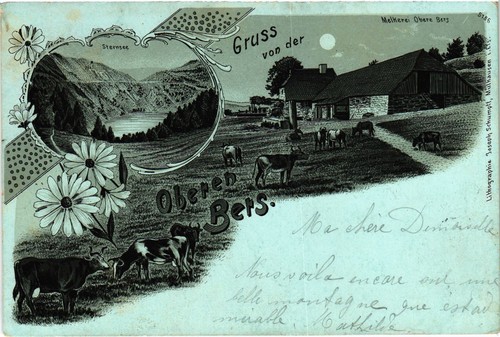 Sternsee
Gruss
von der
Melkerei Obere Bers
Oberen
Bers.
Lithographie Joseph Schummell, Mülhausen i. Els.
Ma chère Demoiselle
Nous voila encore sur une
belle montagne que c'est ad
mirable. Mathilde